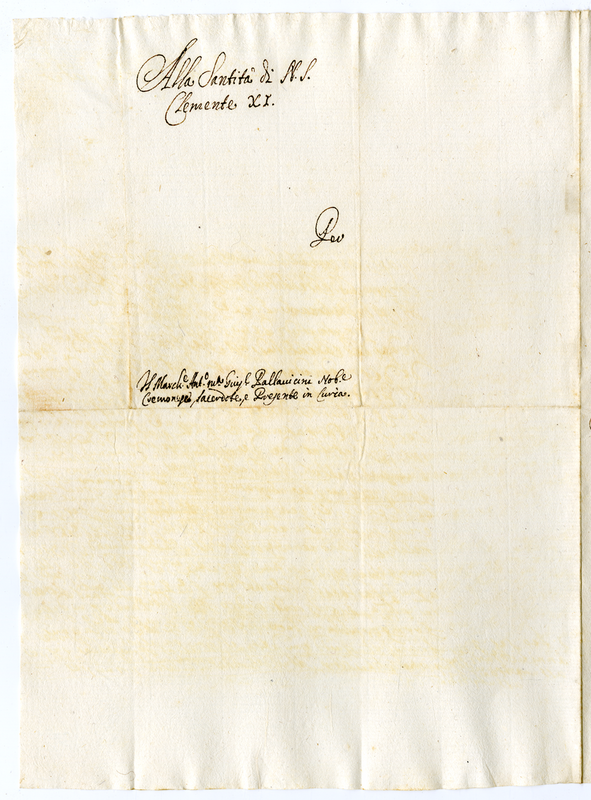 Alla Santità di N. S.
Clemente XI.
Per
Il March.e Ant.o Pallavicini Nob.e
Cremonese, Sacerdote, e Presente in Curia.